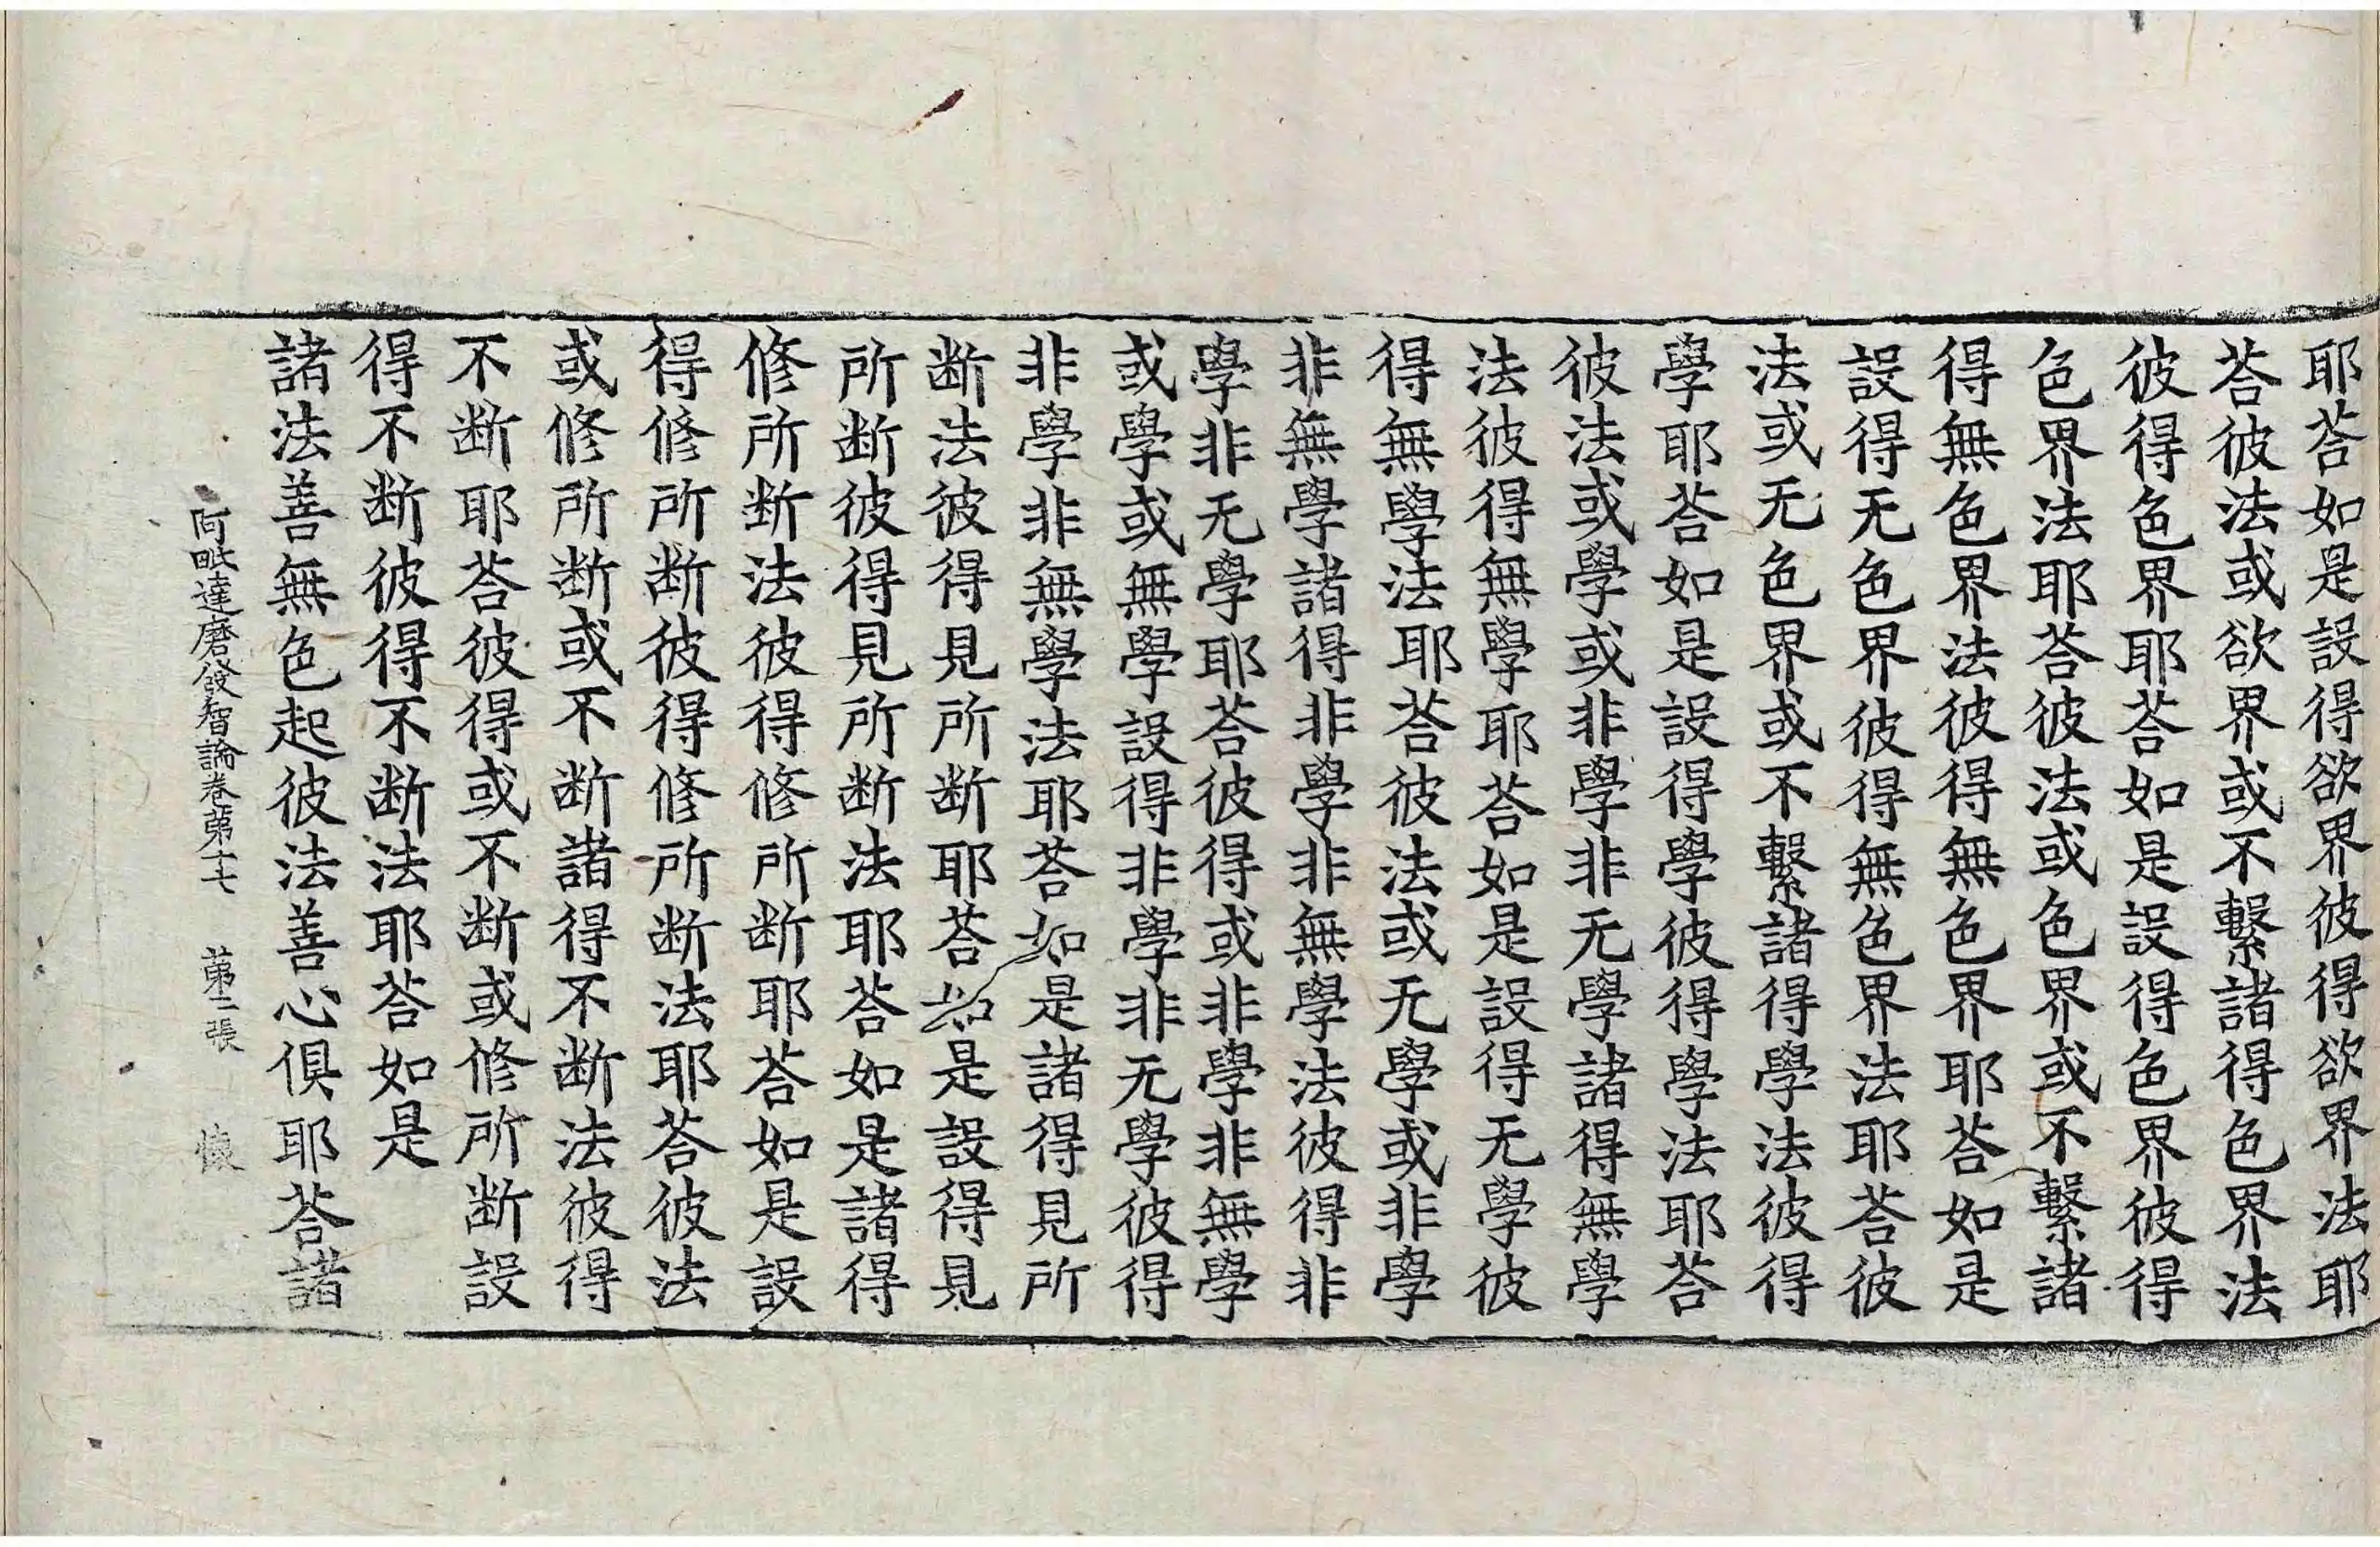 耶荅如是設得欲界彼得欲界法耶
荅彼法或欲界或不繫諸得色界法
彼得色界耶荅如是設得色界彼得
色界法耶荅彼法或色界或不繫諸
得無色界法彼得無色界耶荅如是
設得无色界彼得無色界法耶荅彼
法或无色界或不繫諸得學法彼得
學耶荅如是設得學彼得學法耶荅
彼法或學或非學非无學諸得無學
法彼得無學耶荅如是設得无學彼
得無學法耶荅彼法或无學或非學
非無學諸得非學非無學法彼得非
學非无學耶荅彼得或非學非無學
或學或無學設得非學非无學彼得
非學非無學法耶荅如是諸得見所
断法彼得見所断耶荅如是設得見
所断彼得見所断法耶荅如是諸得
修所断法彼得修所断耶荅如是設
得修所断彼得修所断法耶荅彼法
或修所断或不断諸得不断法彼得
不断耶荅彼得或不断或修所断設
得不断彼得不断法耶荅如是
諸法善無色起彼法善心俱耶荅諸
阿毗達磨發智論卷苐十七 苐二張 懷